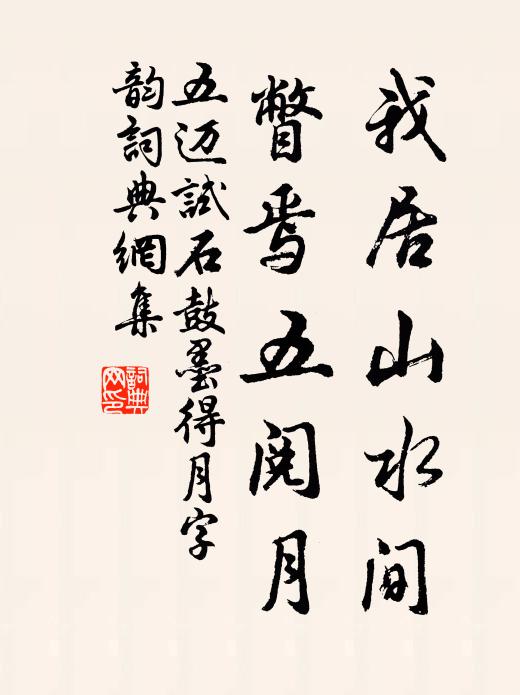 我居山水间
瞥焉五阅月
五迈試石鼓墨得月字
韵詞典網集
詞典
网印